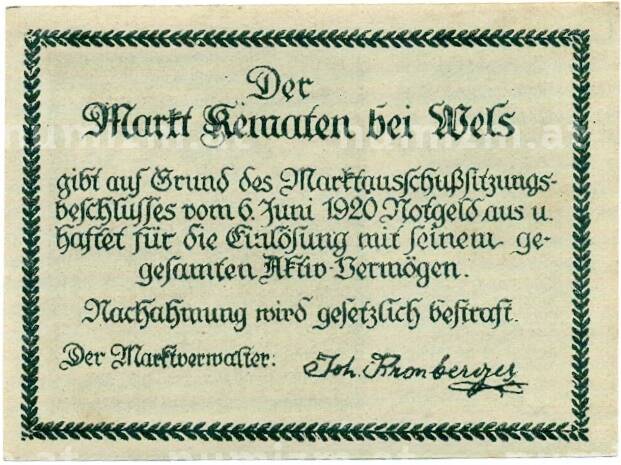 Der
Markt Kematen bei Wels
gibt auf Grund des Marktausschußsitzungs-
beschlusses vom 6. Juni 1920 Notgeld aus u.
haftet für die Einlösung mit seinem ge-
gesamten Aktiv-Vermögen.
Nachahmung wird gesetzlich bestraft.
Der Marktverwalter: Joh. Kronberger
numizm.at